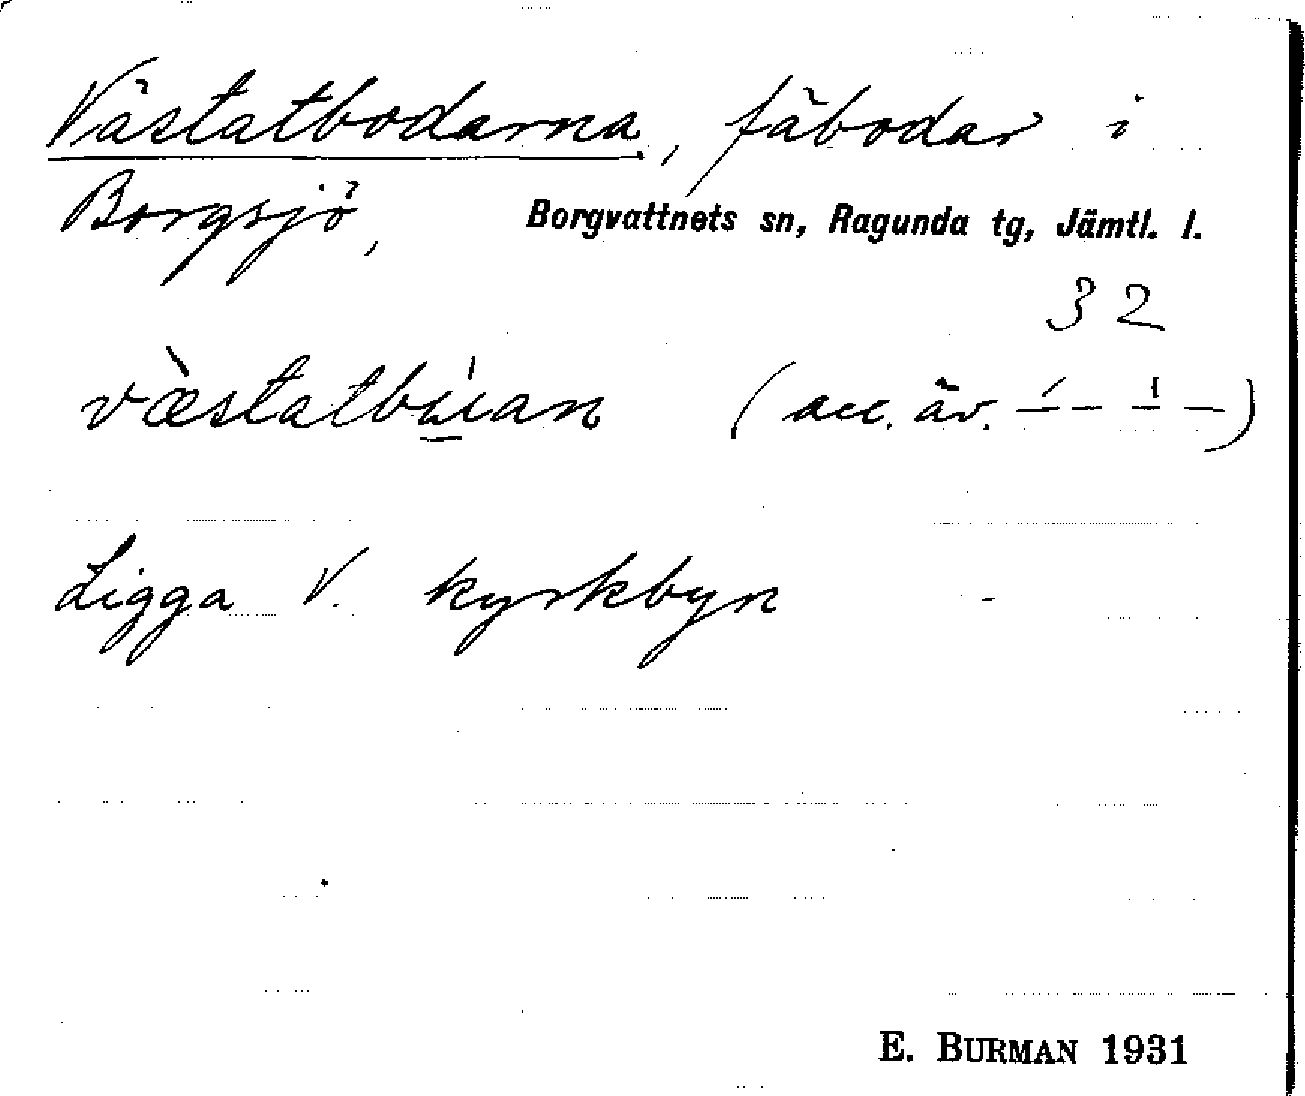 Västatbodarna, fäbodar i
Borgsjö, Borgvattnets sn, Ragunda tg, Jämtl. l.
32
væ̀statbúan (acc. äv. –́ – –́ –)
Ligga V. kyrkbyn
E. BURMAN 1931